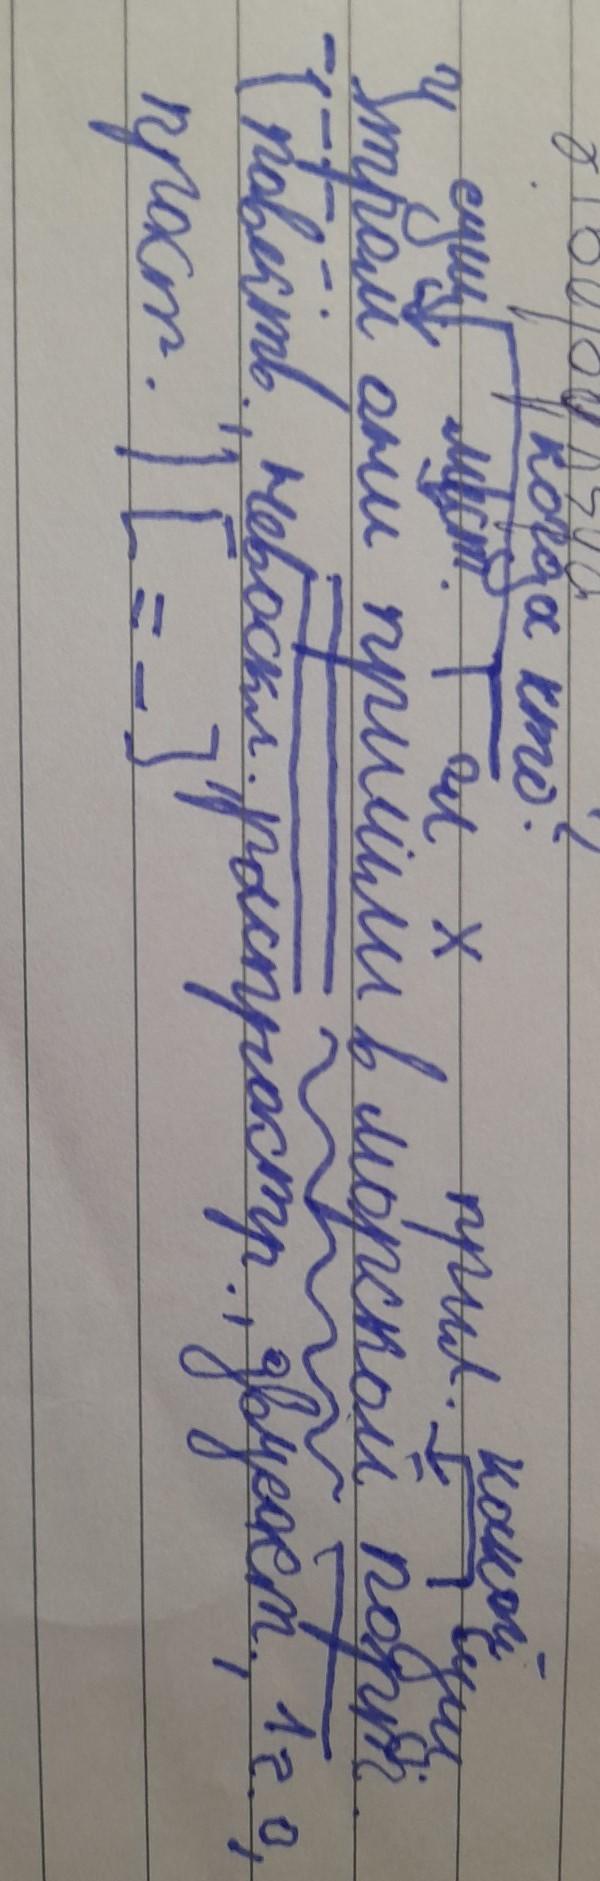 когда кто? какой
сущ мест. гл х прил. сущ
Утром они пришли в морской порт.
(повеств., невоскл. распростр., двусост., 1 г. о,
прост.) [= -]